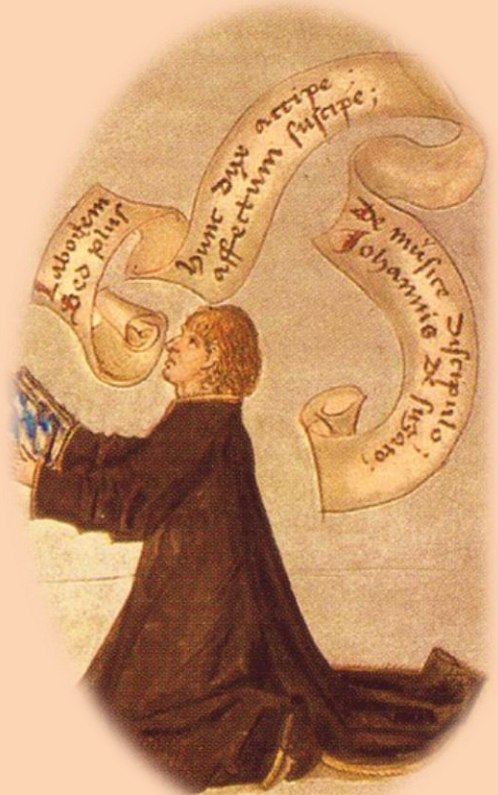 Laborem
Sed plus
hunc dux accipe;
affectum suscipe;
De musice discipulo;
Johannis De